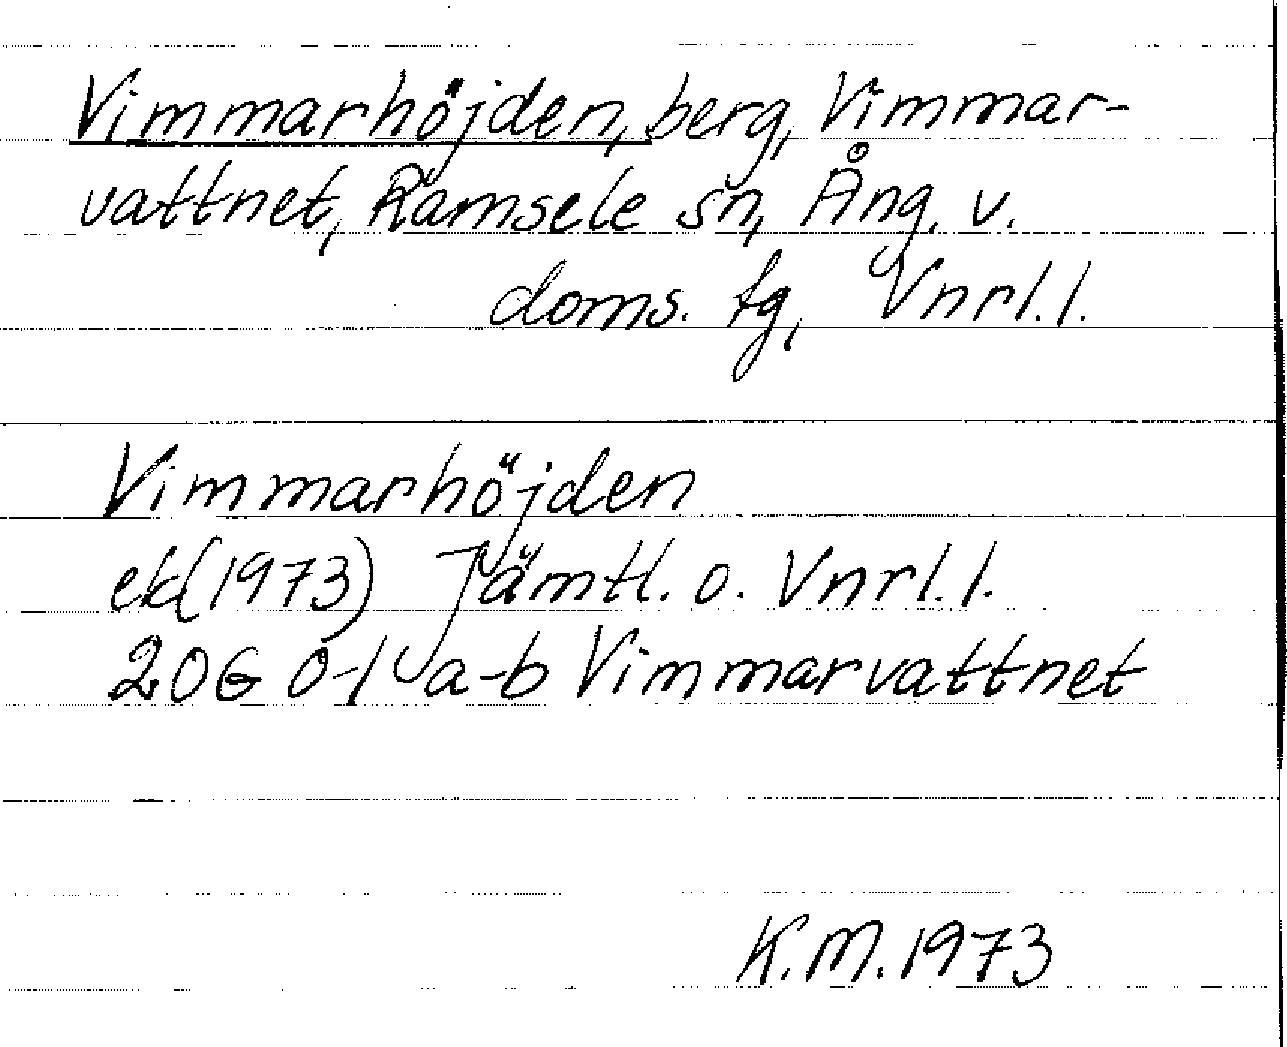 Vimmarhöjden, berg, Vimmar-
vattnet, Ramsele sn, Ång. v.
doms. tg, Vnrl. l.
Vimmarhöjden
ek(1973) Jämtl. o. Vnrl. l.
20G 0-1 a-b Vimmarvattnet
K.M. 1973